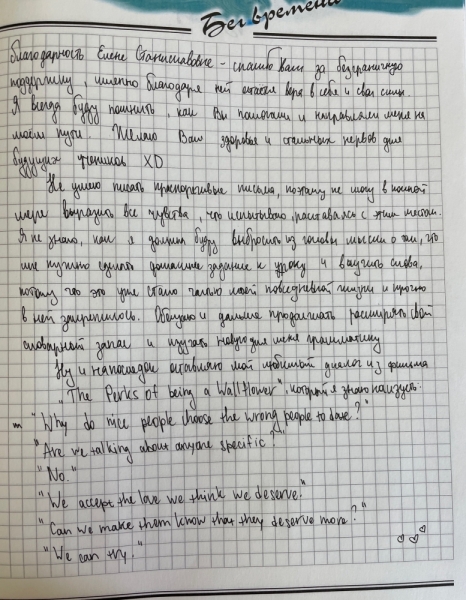 Бег времени
благодарность Елене Станиславовне - спасибо Вам за безграничную
поддержку, именно благодаря ней остаётся вера в себя и свои силы.
Я всегда буду помнить, как Вы помогали и направляли меня на
моём пути. Желаю Вам здоровья и стальных нервов для
будущих учеников XD
Не умею писать прощальные письма, поэтому не могу в полной
мере выразить все чувства, что испытываю, расставаясь с этим местом.
Я не знаю, как я должна буду выбросить из головы мысли о том, что
мне нужно сделать домашнее задание к уроку и выучить слова,
потому что это уже стало частью моей повседневной жизни и прочно
в ней закрепилось. Обещаю и дальше продолжать расширять свой
словарный запас и изучать новую для меня грамматику
Ну и напоследок оставляю мой любимый диалог из фильма
"The Perks of being a Wallflower", который я знаю наизусть.
"Why do nice people choose the wrong people to date?"
"Are we talking about anyone specific?"
"No."
"We accept the love we think we deserve."
"Can we make them know that they deserve more?"
"We can try."